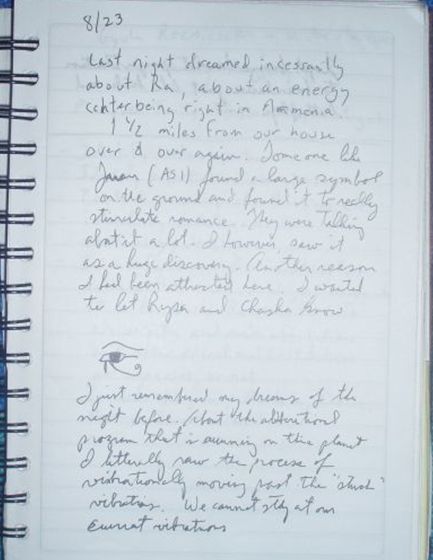 8/23
Last night dreamed incessantly
about Ra, about an energy
center being right in Armenia.
1 1/2 miles from our house
over & over again. Someone like
(ASI) found a large symbol
on the ground and found it to really
stimulate romance. They were talking
about it a lot. I however, saw it
as a huge discovery. Another reason
I had been attracted here. I wanted
to let and know
I just remembered my dreams of the
night before. About the additional
program that is running on this planet
I litterally saw the process of
vibrationally moving past the "stuck"
vibration. We cannot stay at our
current vibrations